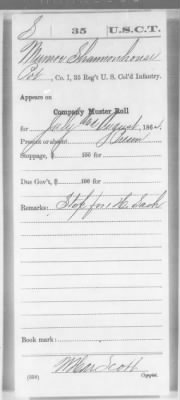 S | 35 | U.S.C.T.
Shannonhouse
Pvt, Co. I, 35 Reg't U. S. Col'd Infantry.
Appears on
Company Muster Roll
for July and August, 1864.
Present or absent Present
Stoppage, $ 100 for
Due Gov't, $ 100 for
Remarks: Stop for 1 H. Sack
Book mark:
Scott
(358) Copyist.